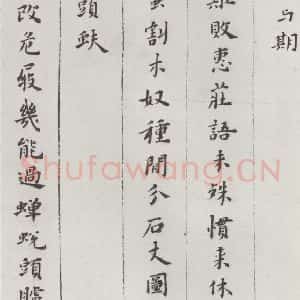 期
敗惠莊語未殊慣来休
割木奴種閒分石大圖
頭缺
改危㞕幾能過蟬蛻頭臚
Shufawang.CN